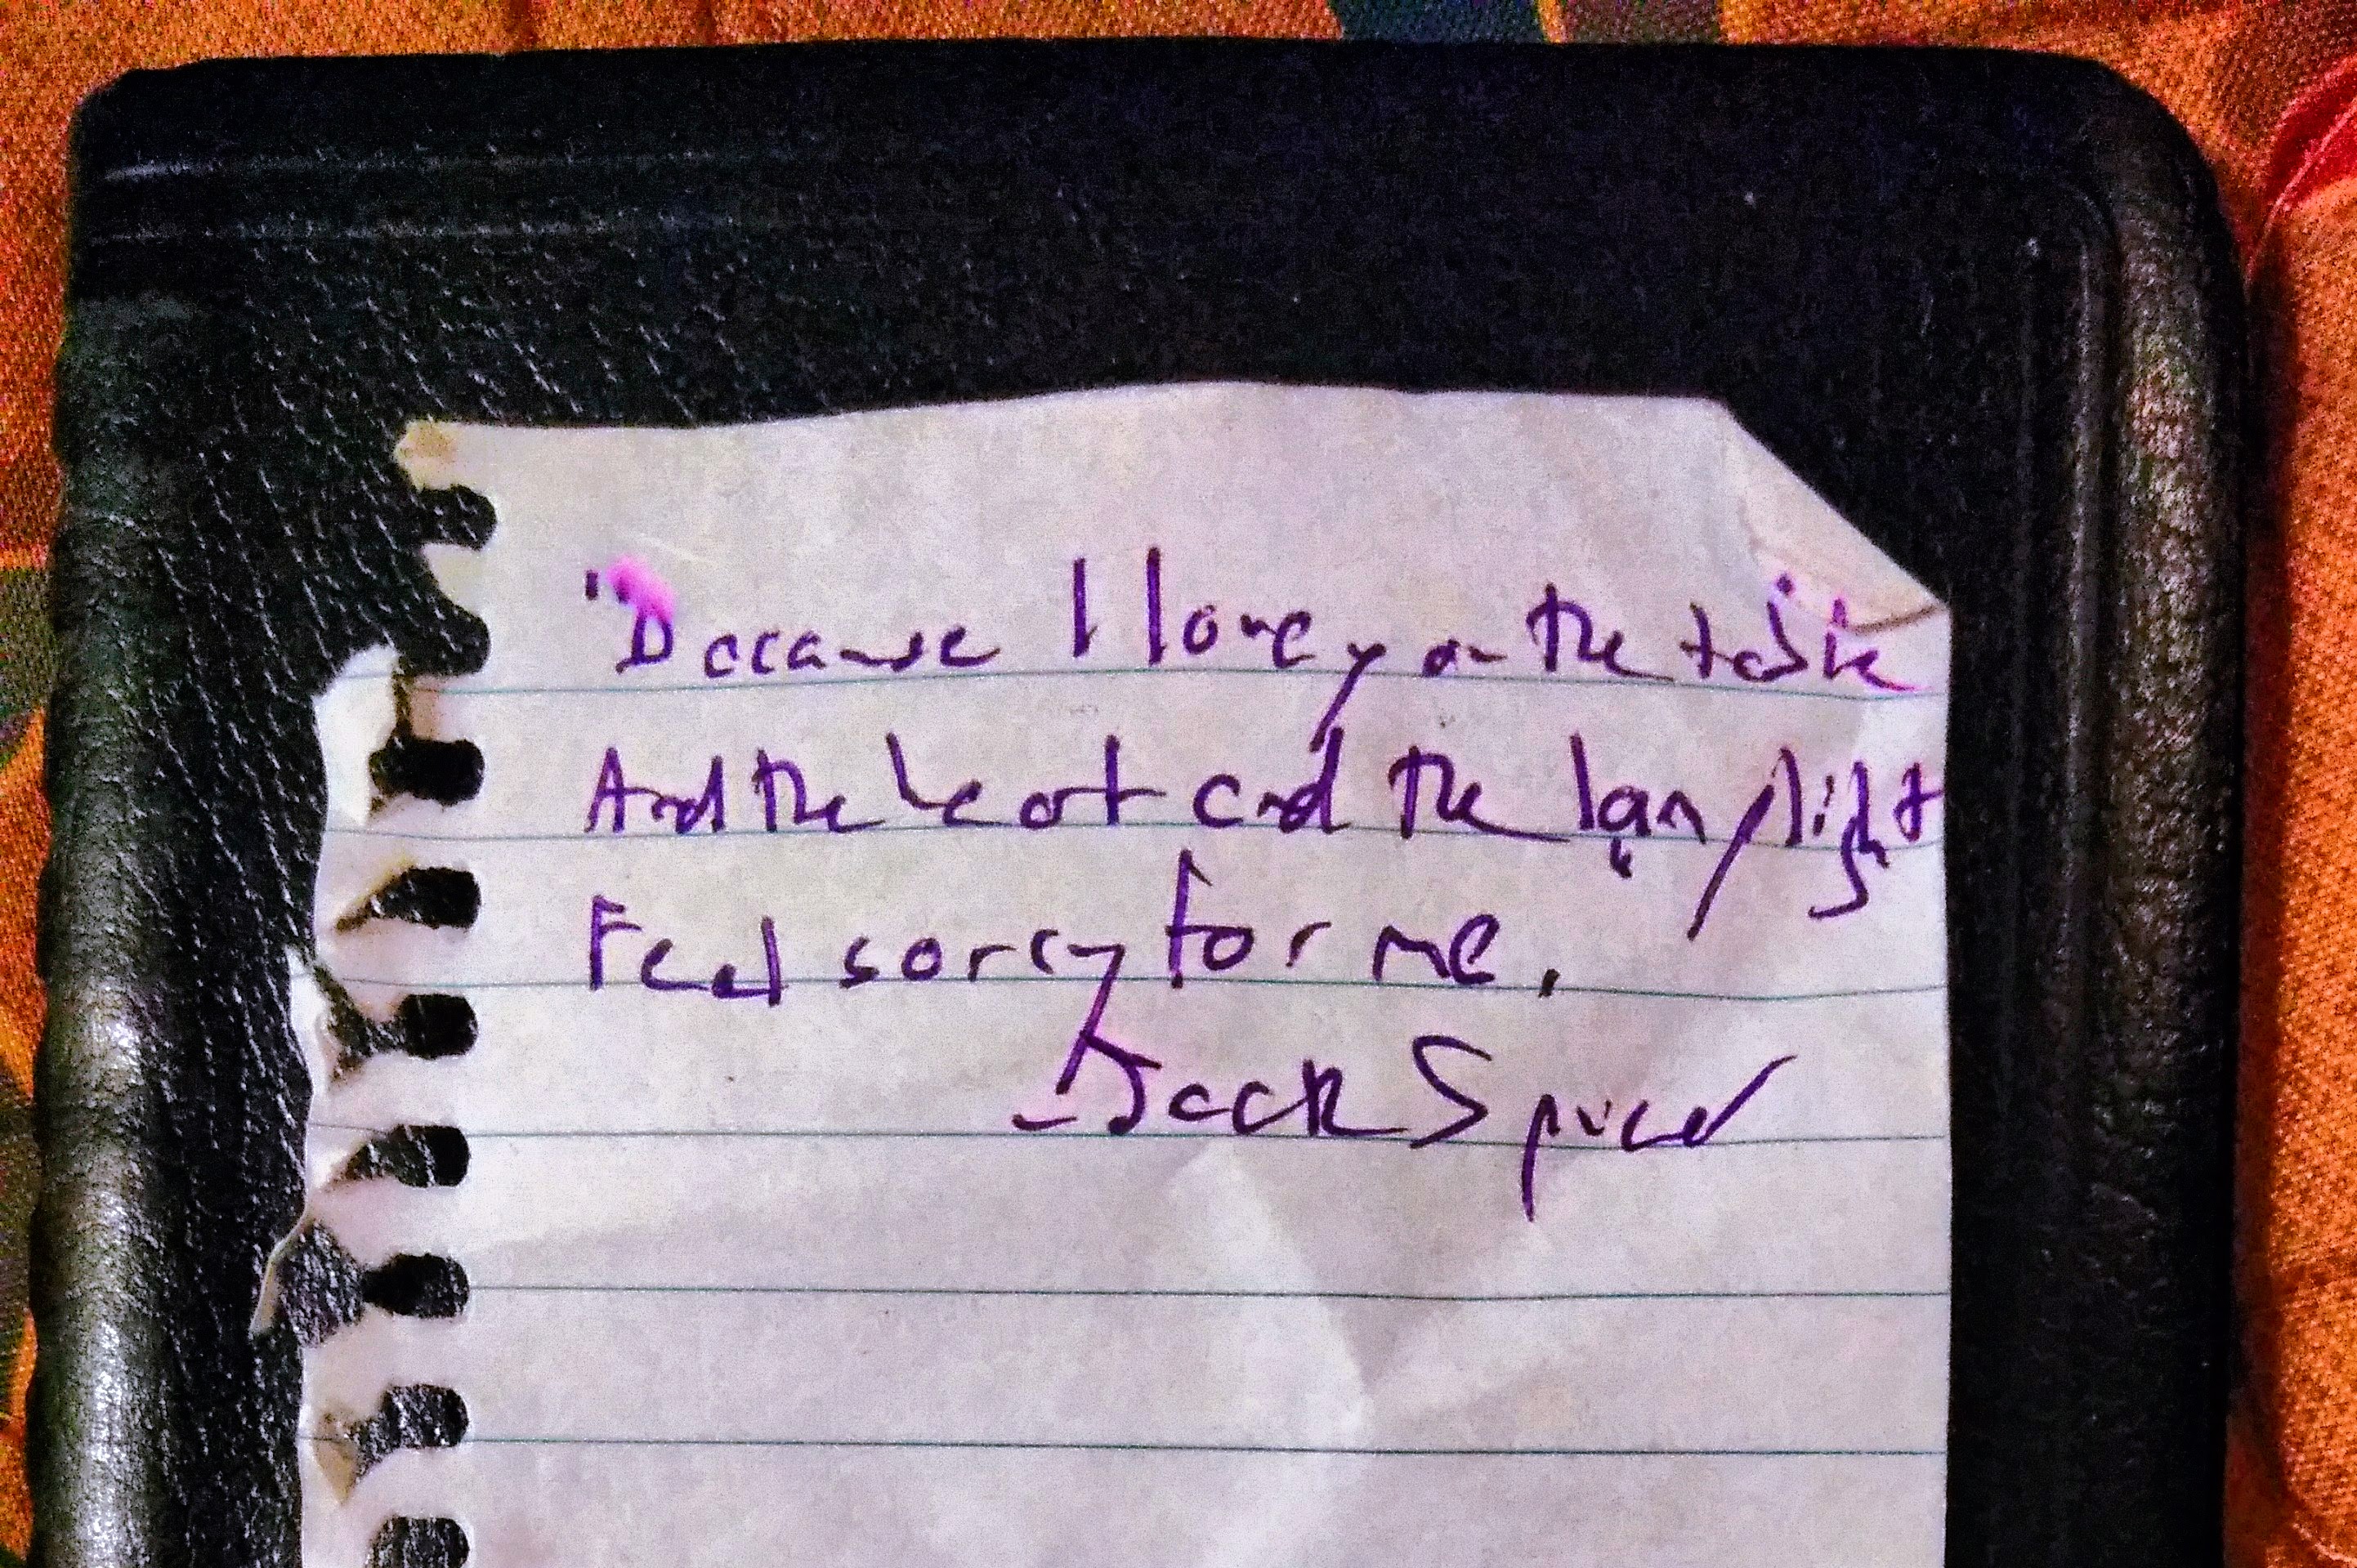 "Because I love you the table
And the heart and the lamplight
Feel sorry for me.
- Jack Spicer